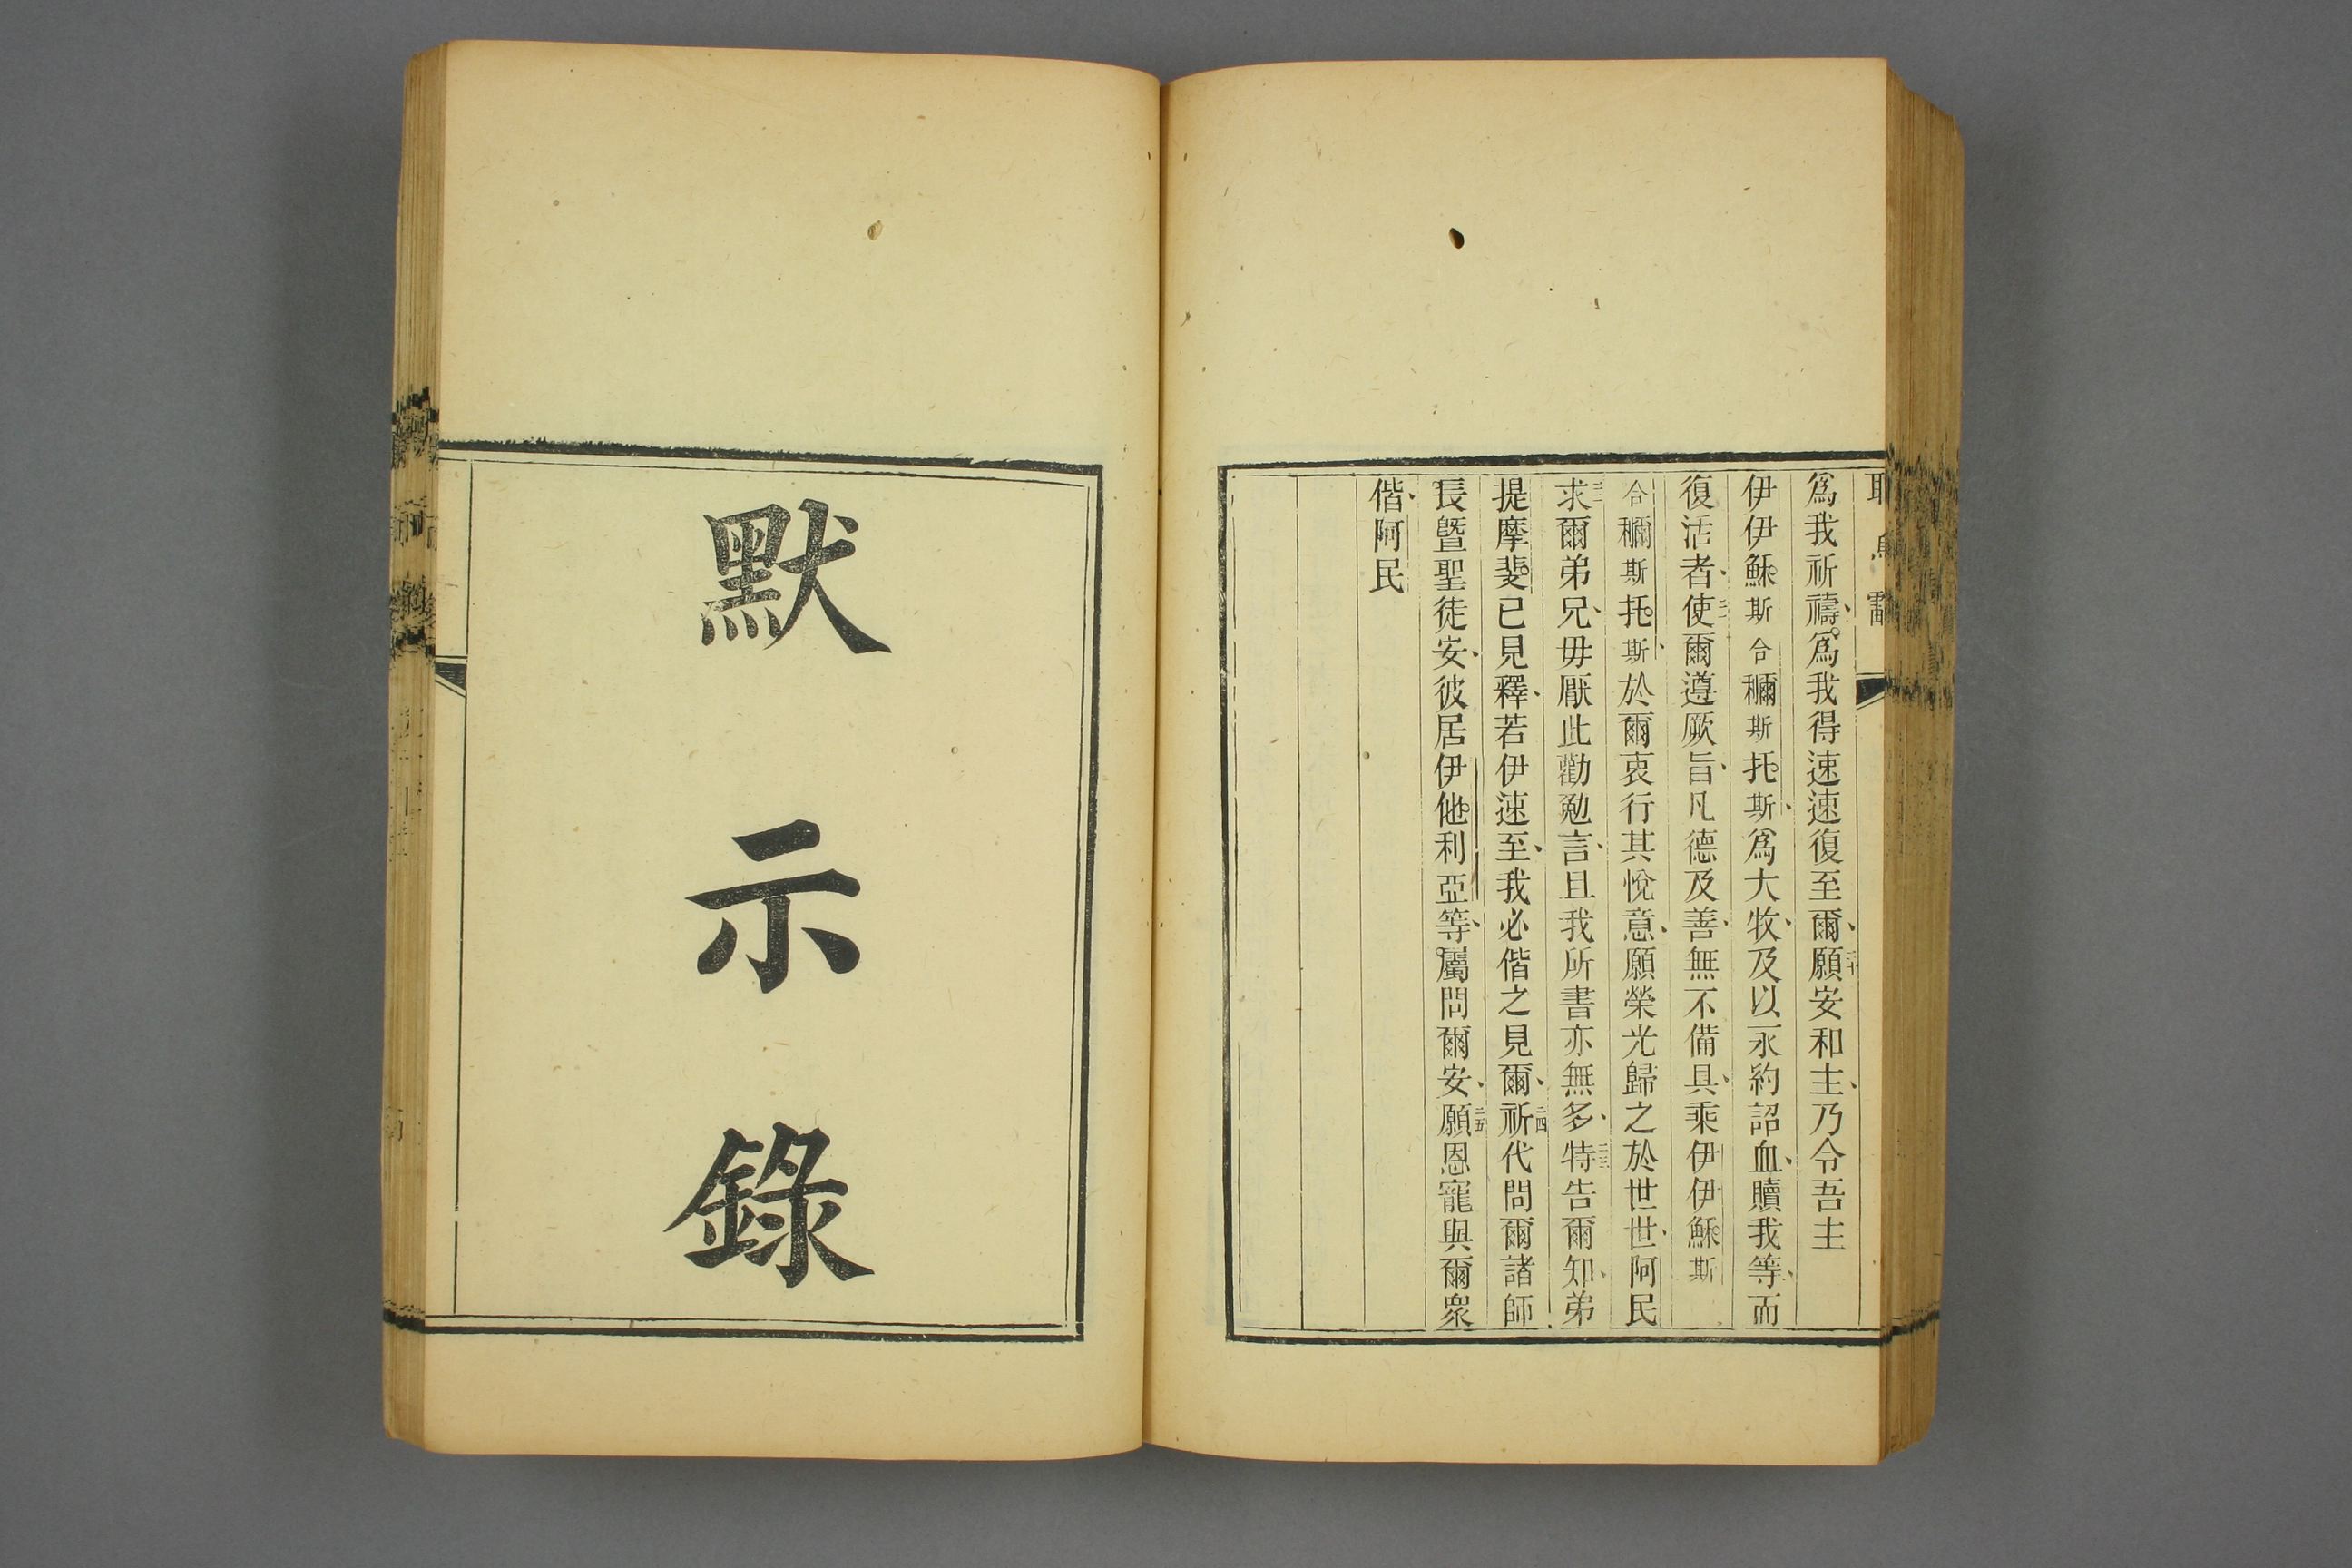 爲我祈禱爲我得速速復至爾二十願安和主乃令吾主
伊伊穌斯合穪斯托斯爲大牧及以永約詔血贖我等而
復活者二一使爾遵厥旨凡德及善無不備具乘伊伊穌斯
合穪斯托斯於爾衷行其悅意願榮光歸之於世世阿民
二二求爾弟兄毋厭此勸勉言且我所書亦無多二三特告爾知弟
提摩斐已見釋若伊速至我必偕之見爾二四祈代問爾諸師
長曁聖徒安彼居伊他利亞等屬問爾安二五願恩寵與爾衆
偕阿民
默示錄